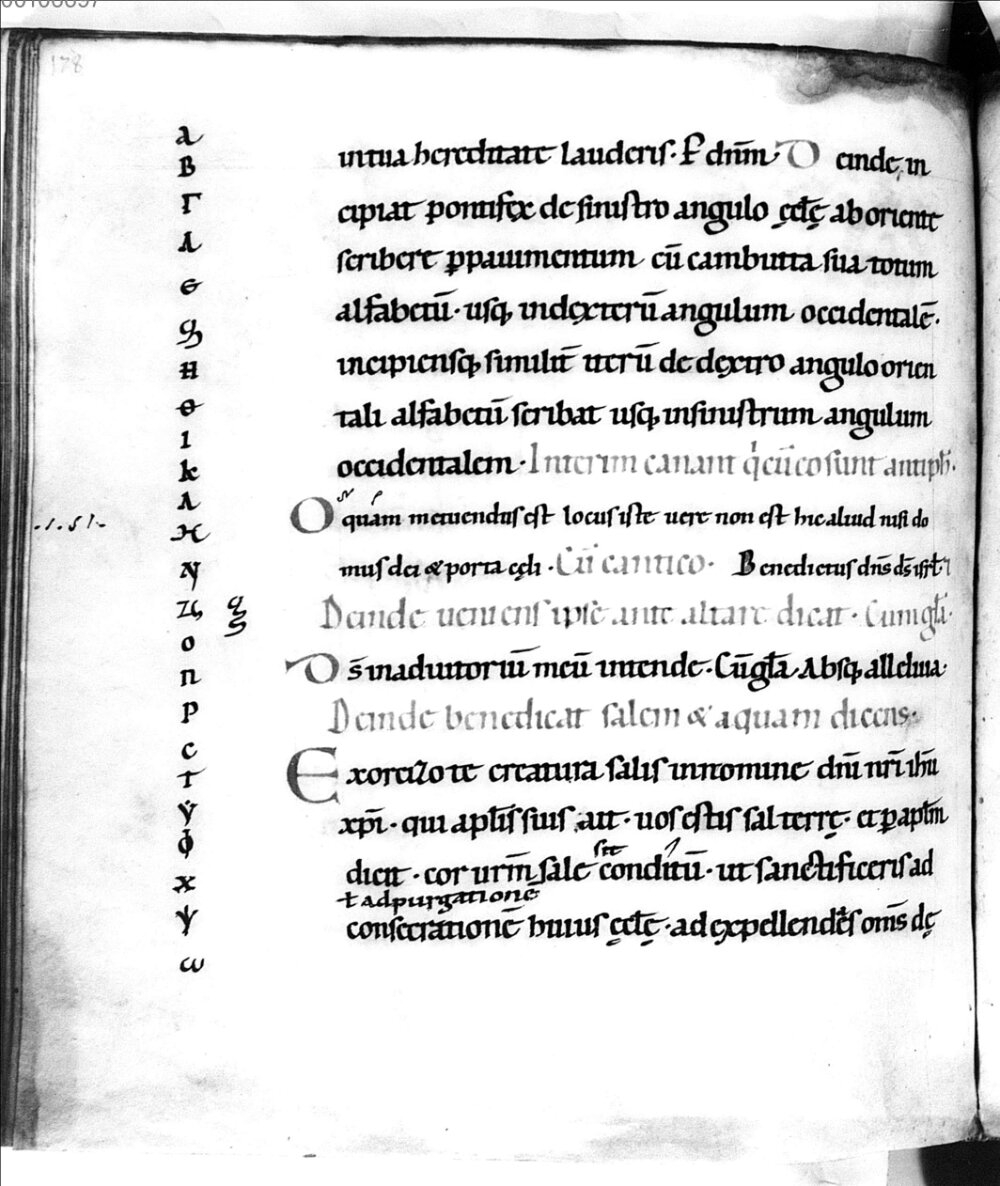 178
in tua hereditate lauderis · P̄ dn̄m · Deinde, in
cipiat pontifex de sinistro angulo ęcl̄ę ab oriente
scribere p̱ pauimentum cū cambutta sua totum
alfabetū · usq; in dextęrū angulum occidentalē ·
incipiensq; similit̄ iterū de dextro angulo orien
tali alfabetū scribat usq; in sinistrum angulum
occidentalem · Interim canant q̍cūco sunt antiph̄ ·
O quam metuendus est locus iste uere non est hic aliud nisi do
mus dei & porta cęli · Cū cantico · Benedictus dn̄s ds̄ isrl̄
Deinde ueniens ipse ante altare dicat · Cum gl̄a ·
Ds̄ in adiutoriū meū intende · Cū gl̄a · Absq; alleluia ·
Deinde benedicat salem & aquam dicens ·
Exorcizo te creatura salis in nomine dn̄i nr̄i ih̄u
xp̄i · qui apl̄is suis ait · uos estis sal terrę · et p̱ apl̄m
dicit · cor ur̄m sale sit conditū · ut sanctificeris ad
ł ad purgationē
consecrationē huius ęcl̄ę · ad expellendēs om̄s dę
a
B
Γ
Λ
ϵ
ϛ
H
θ
ι
k
λ
.1.51.
ϰ
N
Z
ξ
o
π
P
c
τ
ẏ
ϕ
x
ψ
ω